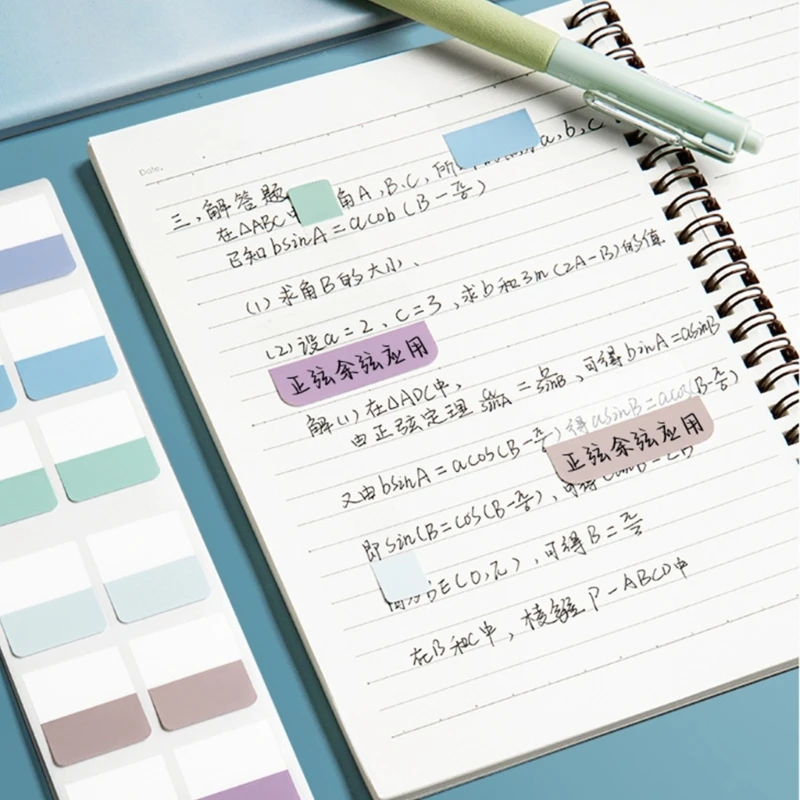 Date.
三,解答题
在△ABC中 角A,B.C,所 a,b,c
已知bsinA=acob(B-π/6)
(1)求角B的大小、
(2)设a=2、c=3,求b和3m(2A-B)的值
正弦余弦应用
解(1)在△ADC中,
由正弦定理 a/sinA = b/sinB ,可得binA=asinB
又由bsinA=acos(B-π/6)得asinB=acos(B-π/6)
正弦余弦应用
即sin(B=cos(B-π/6),可得
B∈(0,π),可得B=π/3
在B和C中,棱锥P-ABCD中